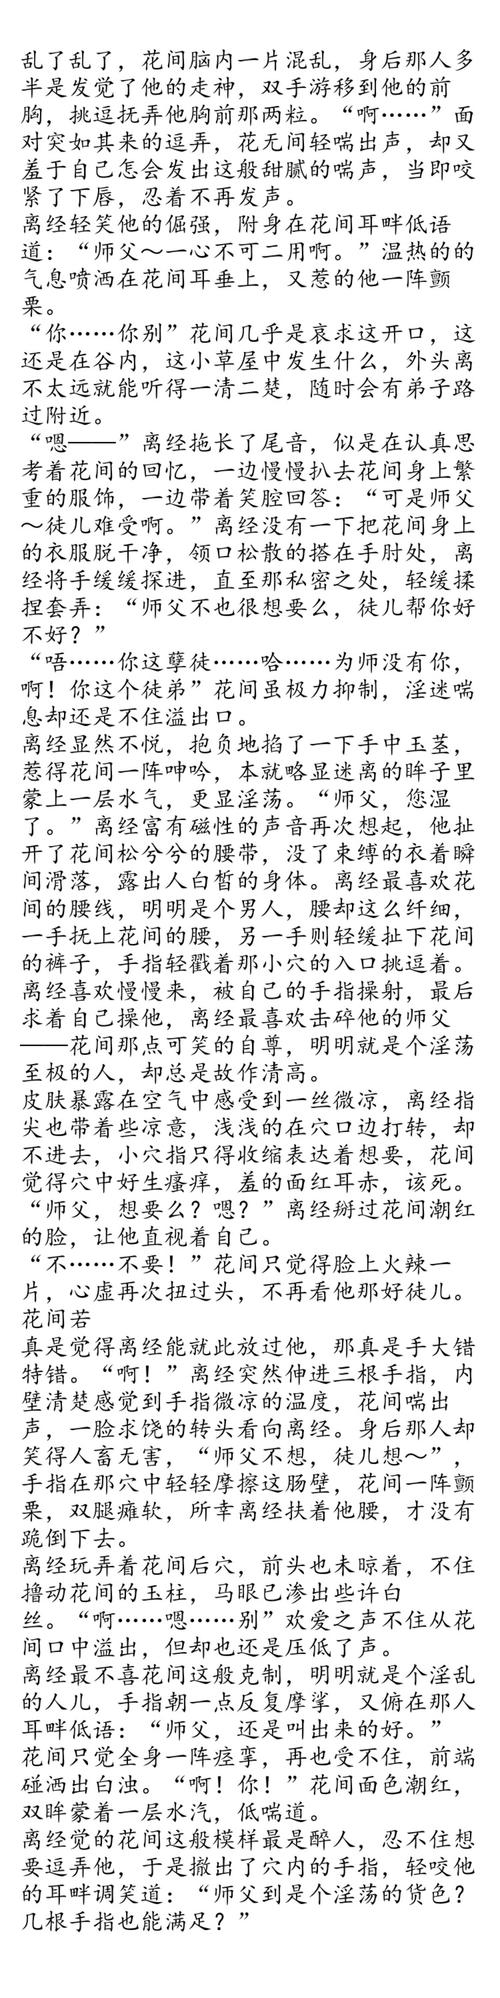 乱了乱了，花间脑内一片混乱，身后那人多
半是发觉了他的走神，双手游移到他的前
胸，挑逗抚弄他胸前那两粒。“啊……”面
对突如其来的逗弄，花无间轻喘出声，却又
羞于自己怎会发出这般甜腻的喘声，当即咬
紧了下唇，忍着不再发声。
离经轻笑他的倔强，附身在花间耳畔低语
道：“师父～一心不可二用啊。”温热的的
气息喷洒在花间耳垂上，又惹的他一阵颤
栗。
“你……你别”花间几乎是哀求这开口，这
还是在谷内，这小草屋中发生什么，外头离
不太远就能听得一清二楚，随时会有弟子路
过附近。
“嗯——”离经拖长了尾音，似是在认真思
考着花间的回忆，一边慢慢扒去花间身上繁
重的服饰，一边带着笑腔回答：“可是师父
～徒儿难受啊。”离经没有一下把花间身上
的衣服脱干净，领口松散的搭在手肘处，离
经将手缓缓探进，直至那私密之处，轻缓揉
捏套弄：“师父不也很想要么，徒儿帮你好
不好？”
“唔……你这孽徒……哈……为师没有你，
啊！你这个徒弟”花间虽极力抑制，淫迷喘
息却还是不住溢出口。
离经显然不悦，抱负地掐了一下手中玉茎，
惹得花间一阵呻吟，本就略显迷离的眸子里
蒙上一层水气，更显淫荡。“师父，您湿
了。”离经富有磁性的声音再次想起，他扯
开了花间松兮兮的腰带，没了束缚的衣着瞬
间滑落，露出人白皙的身体。离经最喜欢花
间的腰线，明明是个男人，腰却这么纤细，
一手抚上花间的腰，另一手则轻缓扯下花间
的裤子，手指轻戳着那小穴的入口挑逗着。
离经喜欢慢慢来，被自己的手指操射，最后
求着自己操他，离经最喜欢击碎他的师父
——花间那点可笑的自尊，明明就是个淫荡
至极的人，却总是故作清高。
皮肤暴露在空气中感受到一丝微凉，离经指
尖也带着些凉意，浅浅的在穴口边打转，却
不进去，小穴指只得收缩表达着想要，花间
觉得穴中好生瘙痒，羞的面红耳赤，该死。
“师父，想要么？嗯？”离经掰过花间潮红
的脸，让他直视着自己。
“不……不要！”花间只觉得脸上火辣一
片，心虚再次扭过头，不再看他那好徒儿。
花间若
真是觉得离经能就此放过他，那真是手大错
特错。“啊！”离经突然伸进三根手指，内
壁清楚感觉到手指微凉的温度，花间喘出
声，一脸求饶的转头看向离经。身后那人却
笑得人畜无害，“师父不想，徒儿想～”，
手指在那穴中轻轻摩擦这肠壁，花间一阵颤
栗，双腿瘫软，所幸离经扶着他腰，才没有
跪倒下去。
离经玩弄着花间后穴，前头也未晾着，不住
撸动花间的玉柱，马眼已渗出些许白
丝。“啊……嗯……别”欢爱之声不住从花
间口中溢出，但却也还是压低了声。
离经最不喜花间这般克制，明明就是个淫乱
的人儿，手指朝一点反复摩挲，又俯在那人
耳畔低语：“师父，还是叫出来的好。”
花间只觉全身一阵痉挛，再也受不住，前端
碰洒出白浊。“啊！你！”花间面色潮红，
双眸蒙着一层水汽，低喘道。
离经觉的花间这般模样最是醉人，忍不住想
要逗弄他，于是撤出了穴内的手指，轻咬他
的耳畔调笑道：“师父到是个淫荡的货色？
几根手指也能满足？”